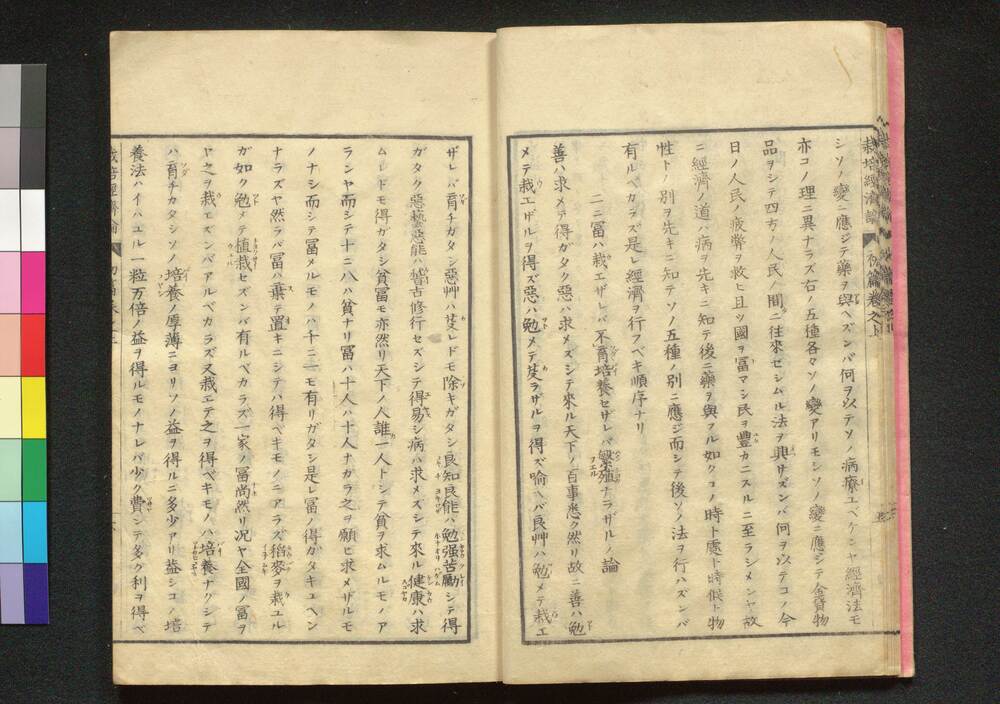 栽培經濟論 初篇卷之上
シソノ變ニ應ジテ藥ヲ與ヘズンバ何ヲ以テソノ病療エベケンヤ經濟法モ
亦コノ理ニ異ナラズ右ノ五種各々ソノ變アリモシソノ變ニ應シテ金貨物
品ヲシテ四方ノ人民ノ間ニ往來セシムル法ヲ興サズンバ何ヲ以テコノ今
日ノ人民ノ疲弊ヲ救ヒ且ツ國ヲ冨マシ民ヲ豊カニスルニ至ラシメンヤ故
ニ經濟ノ道ハ病ヲ先キニ知テ後ニ藥ヲ與フル如クコノ時ト處ト時候ト物
性トノ別ヲ先キニ知テソノ五種ノ別ニ應ジ而シテ後ソノ法ヲ行ハズンバ
有ルベカラズ是レ經濟ヲ行フベキ順序ナリ
二ニ冨ハ栽エザレバ不育培養セザレバ繁殖ナラザルノ論
善ハ求メテ得ガタク惡ハ求メズシテ來ル天下ノ百事悉ク然リ故ニ善ハ勉
メテ栽エザルヲ得ズ惡ハ勉メテ芟ラザルヲ得ズ喩ヘバ良艸ハ勉メテ栽エ
ザレバ育チガタシ惡艸ハ芟レドモ除キガタシ良知良能ハ勉强苦勵シテ得
ガタク惡藝惡能ハ稽古修行セズシテ得易シ病ハ求メズシテ來ル健康ハ求
ムレドモ得ガタシ貧冨モ亦然リ天下ノ人誰一人トシテ貧ヲ求ムルモノア
ランヤ而シテ十ニ八ハ貧ナリ冨ハ十人ハ十人ナガラ之ヲ願ヒ求メザルモ
ノナシ而シテ冨メルモノハ十ニ二モ有リガタシ是レ冨ノ得ガタキユヘン
ナラズヤ然ラバ冨ハ棄テ置キニシテハ得ベキモノニアラズ稻麥ヲ栽ユル
ガ如ク勉メテ植栽セズンバ有ルベカラズ一家ノ冨尚然リ况ヤ全國ノ冨ヲ
ヤ之ヲ栽エズンバアルベカラズ又栽エテ之ヲ得ベキモノハ培養ナクシテ
ハ育チカタシソノ培養ノ厚薄ニヨリソノ益ヲ得ルニ多少アリ益シコノ培
養法ハイハユル一粒万倍ノ益ヲ得ルモノナレバ少ク費シテ多ク利ヲ得ベ